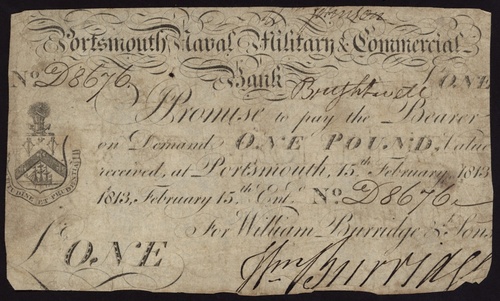 Portsmouth Naval Military & Commercial
Bank
No. D8676. Brightwell £ONE
I Promise to pay the Bearer
on Demand ONE POUND, Value
received, at Portsmouth, 15th February 1813
1813, February 15th Ent. No. D8676.
For William Burridge & Son
£ ONE
Wm Burridge